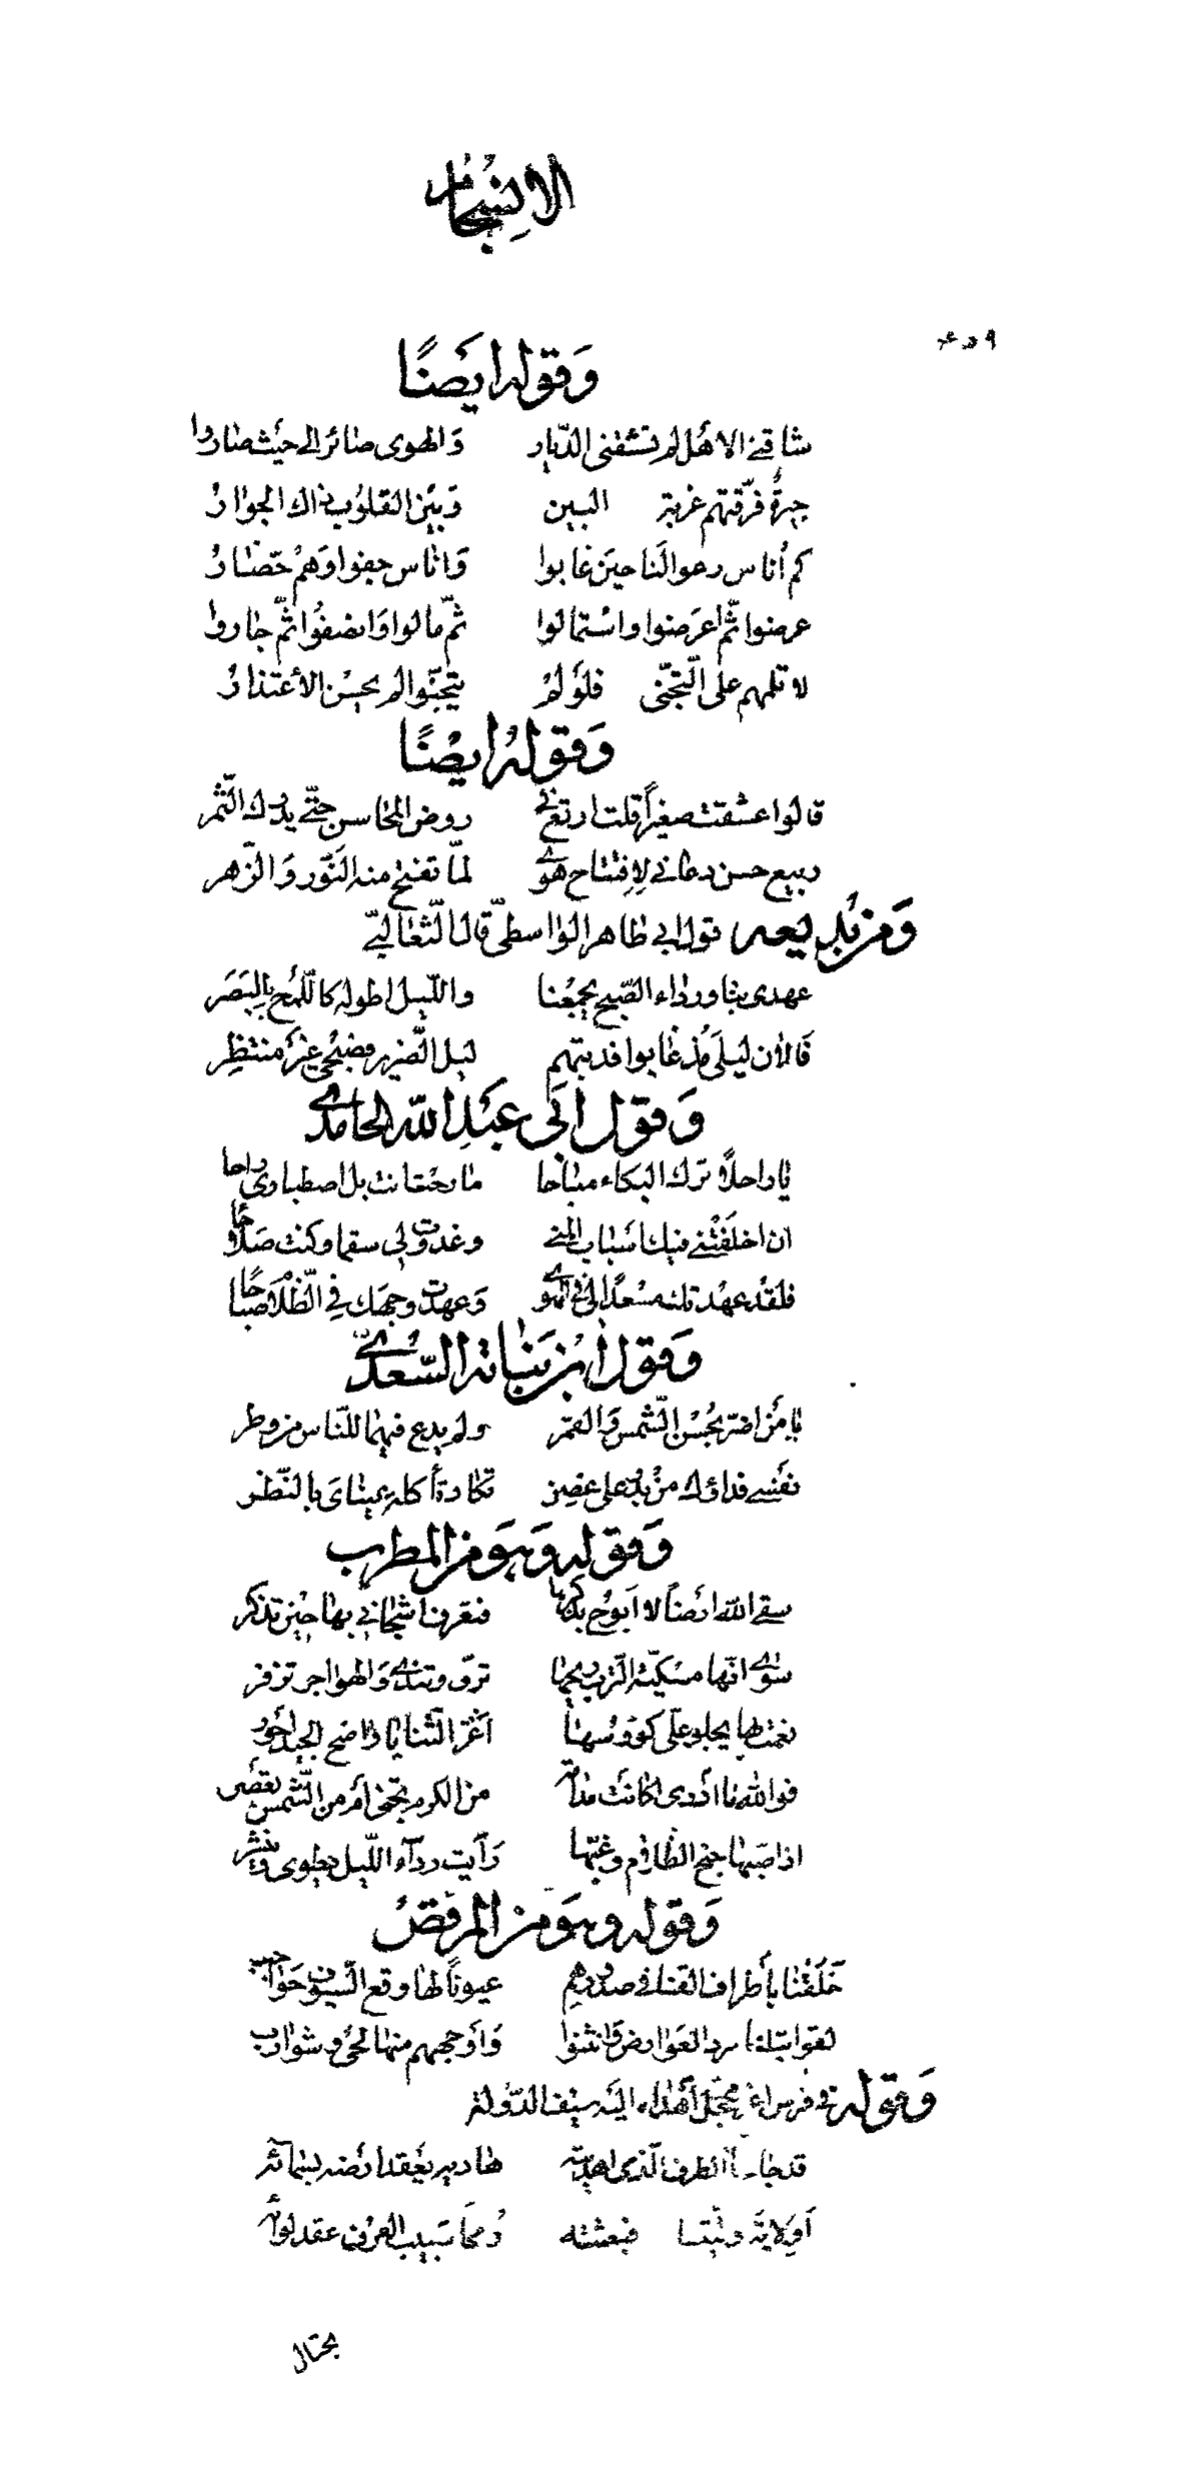 الانسجام
وَقوله ايضًا
شاقني الاهل لم تشقني الديار وَالهوى صائر الى حيث صاروا
جيرةٌ فرّقتهم غربة البين وَبين القلوب ذاك الجوارُ
كم أناس رعوا لنا حين غابوا وَاناس جفوا وَهم حضّارُ
عرضوا ثمّ اعرضوا واستمالوا ثمّ مالوا وَانصفوا ثمّ جاروا
لا تلمهم على التجنّى فلو لم يتجنّوا لم يحسن الأعتذارُ
وَقوله ايضًا
قالوا عشقت صغيراً قلت ارتع في روض المحاسن حتّى يدرك الثّمر
ربيع حسن دعاني لافتتاح هوى لمّا تفتح منه النّور وَالزّهر
وَمن بديعه قول ابي طاهر الواسطيّ قال الثّعالبيّ
عهدي بنا ورداء الصّبح يجمعنا والليل اطوله كاللّمح بالبصر
فالآن ليلى مذ غابوا فديتهم ليل الضّرير فصبحي غير منتظر
وَقول ابي عبد الله الحامدي
يا راحلاً ترك البكاء مباحا ما رحت انت بل اصطباري راحا
ان اخلفتني فيك اسباب المنى وغدوت لي سقما وكنت صلاحا
فلقد عهدتك مسعداً لي في الهوى وَعهدت وجهك في الظّلام صباحًا
وَقول ابن نباتة السّعديّ
يا من اضرّ بحسن الشّمس وَالقمر ولم يدع فيهما للنّاس من وطر
نفسي فداؤك من بدر على غصن تكاد تأكله عيناي بالنّظر
وَقوله وَهو من المطرب
سقى الله ارضاً لا ابوح بذكرها فتعرف اشجاني بها حين تذكر
سوى انّها مسكيّة التّرب ريحها ترّق وتندى وَالهواجر تزفر
نعمت بها يجلو علىّ كؤوسها اغرّ الثّنايا واضح الجيد أحور
فوالله ما أدري اكانت مدامة من الكرم تجنى أم من الشّمس تعصر
اذا صبّها جنح الظّلام وعبّها رأيت رداء اللّيل يطوى وينشر
وَقوله وهو من المرقص
خلقنا بأطراف القنا في صدورهم عيوناً لها وقع السّيوف حواجب
لقوا نبلنا مرد العوارض وَانثنوا وَأوجههم منها لحى وشوارب
وَقوله في فرس اغرّ محجّل أهداه اليه سيف الدّولة
قد جاءنا الطرف الّذي اهديته هاديه يعقد ارضه بسمائه
أولاية ولّيتنا فبعثته رمحا سبيب العرف عقد لوائه
يختال